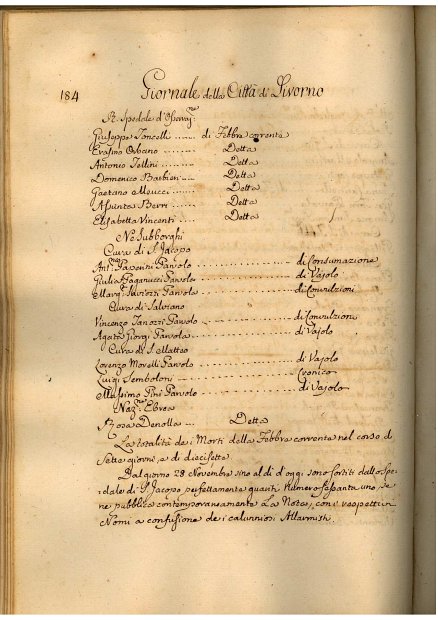 184 Giornale della Città di Livorno
R. Spedale d'Osservaz:ne
Giuseppe Toncelli ....... di Febbre corrente
Erasmo Orbano ....... Detta
Antonio Tellini ....... Detta
Domenico Barbieri ....... Detta
Gaetano Meucci ....... Detta
Assunta Berri ....... Detta
Elisabetta Vincenti ... Detta
Ne Subborghi
Cura di S. Jacopo
Parvolo ....... di Consumazione
Giulia Paganucci Parvola ....... di Vajolo
Parvola ....... di Convulzioni
Cura di Salviano
Vincenzo Parvolo ....... di Convulzioni
Agata Giorgi Parvola ....... di Vajolo
Cura di S. Matteo
Lorenzo Morelli Parvolo ....... di Vajolo
Luigi Semboloni ....... Cronico
Massimo Pini Parvolo ....... di Vajolo
Naz:ne Ebrea
Rosa Denolla ... Detta
La totalità de i Morti della Febbra corrente nel corso di
sette giorni, e di diecisette
Dal giorno 28 Novembre sino al dì d'oggi sono sortiti dallo Spe-
dale di S. Jacopo perfettamente guariti Numero sessanta uno, se
ne pubblica contemporaneamente La Nota, con i respettivi
Nomi a confusione de i calunniosi Allarmisti.